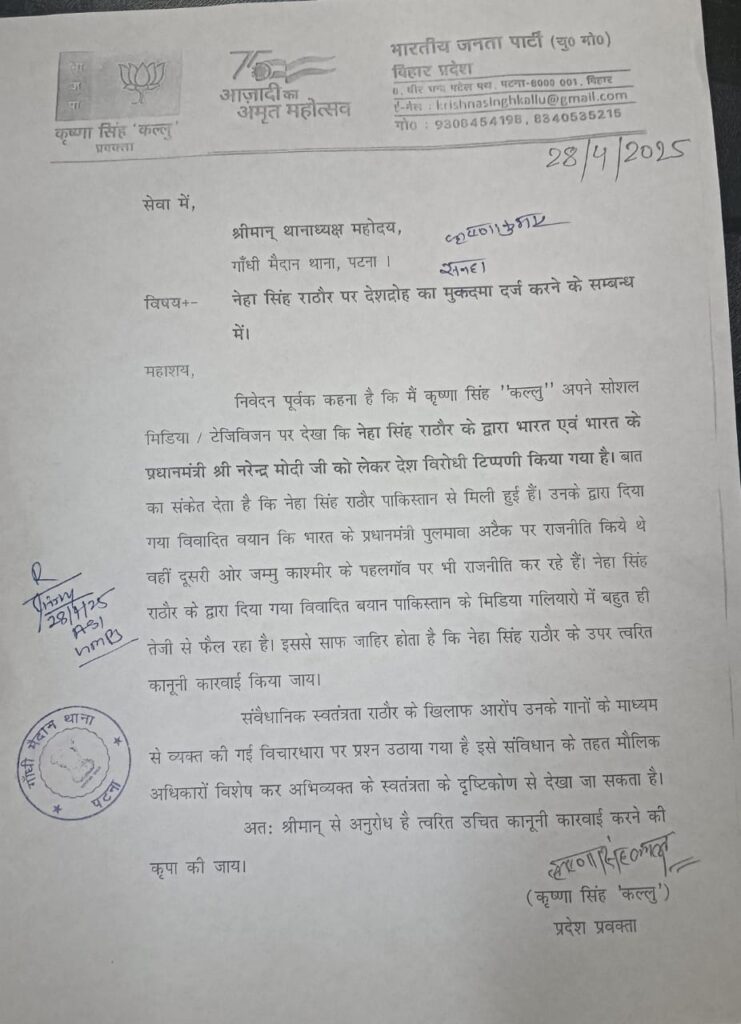 भा
ज
पा
कृष्णा सिंह 'कल्लु'
प्रवक्ता
75
आज़ादी का
अमृत महोत्सव
भारतीय जनता पार्टी (यु० मो०)
बिहार प्रदेश
6, वीर चन्द पटेल पथ, पटना-8000 001, बिहार
ई-मेल : krishnasinghkallu@gmail.com
मो० : 9308454198, 8340535215
28/4/2025
सेवा में,
श्रीमान् थानाध्यक्ष महोदय,
गाँधी मैदान थाना, पटना ।
कृष्णा कुमार
सनहा
विषय÷-
नेहा सिंह राठौर पर देशद्रोह का मुकदमा दर्ज करने के सम्बन्ध
में।
महाशय,
निवेदन पूर्वक कहना है कि मैं कृष्णा सिंह ''कल्लु'' अपने सोशल
मिडिया / टेजिविजन पर देखा कि नेहा सिंह राठौर के द्वारा भारत एवं भारत के
प्रधानमंत्री श्री नरेन्द्र मोदी जी को लेकर देश विरोधी टिप्पणी किया गया है। बात
का संकेत देता है कि नेहा सिंह राठौर पाकिस्तान से मिली हुई हैं। उनके द्वारा दिया
गया विवादित वयान कि भारत के प्रधानमंत्री पुलमावा अटैक पर राजनीति किये थे
वहीं दूसरी ओर जम्मु काश्मीर के पहलगाँव पर भी राजनीति कर रहे हैं। नेहा सिंह
राठौर के द्वारा दिया गया विवादित बयान पाकिस्तान के मिडिया गलियारो में बहुत ही
तेजी से फैल रहा है। इससे साफ जाहिर होता है कि नेहा सिंह राठौर के उपर त्वरित
कानूनी कारवाई किया जाय।
R
28/4/25
ASI
संवैधानिक स्वतंत्रता राठौर के खिलाफ आरोंप उनके गानों के माध्यम
से व्यक्त की गई विचारधारा पर प्रश्न उठाया गया है इसे संविधान के तहत मौलिक
अधिकारों विशेष कर अभिव्यक्त के स्वतंत्रता के दृष्टिकोण से देखा जा सकता है।
गाँधी मैदान थाना
पटना
अतः श्रीमान् से अनुरोध है त्वरित उचित कानूनी कारवाई करने की
कृपा की जाय।
(कृष्णा सिंह 'कल्लु')
प्रदेश प्रवक्ता